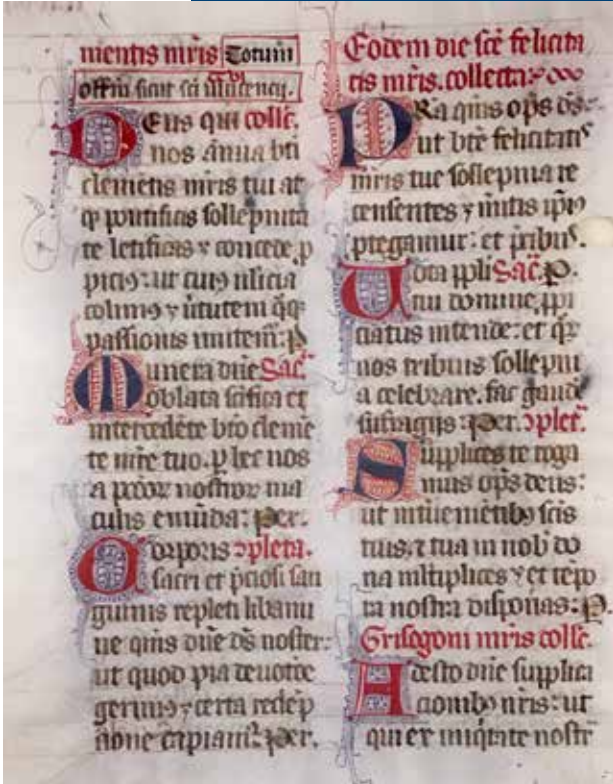 mentis mris Totum
offm sicut sci vincencij.
Deus qui collc.
nos annua bti
clemetis mris tui at
q pontificis sollepnita
te letificas ⁊ concede, p
picius: ut cuius nlicia
colimus ⁊ uitutem qq
passionis imitem: p
Munera dne Sac.
oblata scifica et
intercedete bto cleme
te mre tuo. p hec nos
a pccor nostror ma
culis emuda: per.
Corporis ɔpleta.
sacri et pciosi san
guinis repleti libami
ne qms dne ds noster:
ut quod pia deuotoe
gerimus ⁊ certa redep
tione capiam: per.
Eodem die sce felicita
tis mris. collecta:
PRa qms ops ds:
ut bte felicitatis
mris tue sollepnia re
censentes ⁊ mitis ipius
ptegamur: et pcibus.
Uota ppli Sac. p.
tui domine, ppi
ciatus intende: et qr
nos tribuis sollepni
a celebrare. fac gaude
sufragijs: per. ɔplet.
Supplices te roga
mus ops deus:
ut intueniētibus scis
tuis. ⁊ tua in nob do
na mltiplices ⁊ et tepo
ra nostra disponas: p.
Grisogoni mris collc.
Adesto dne supplica
cionibus nris: ut
qui ex iniqtate nostr